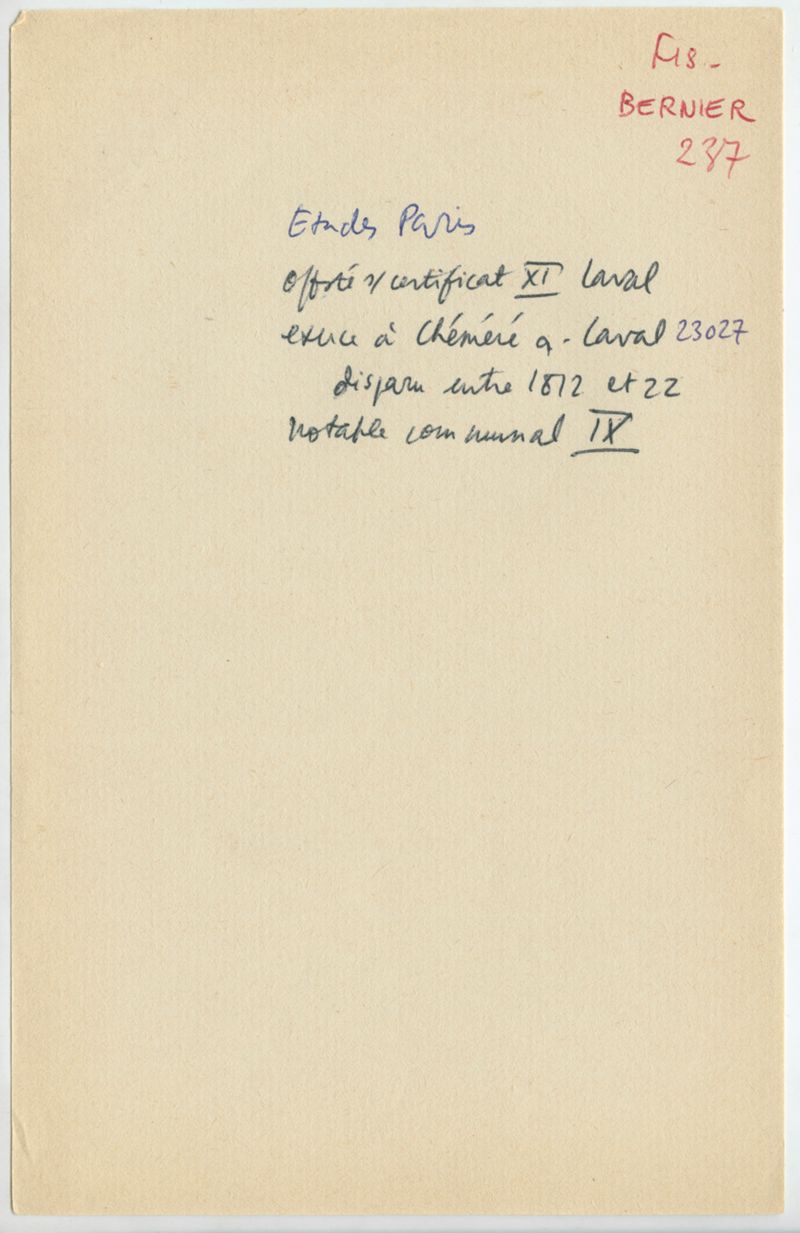 BERNIER
237
Etudes Paris
certificat XI Laval
exerce à Chéméré a. Laval 23027
disparu entre 1812 et 22
Notable communal IX